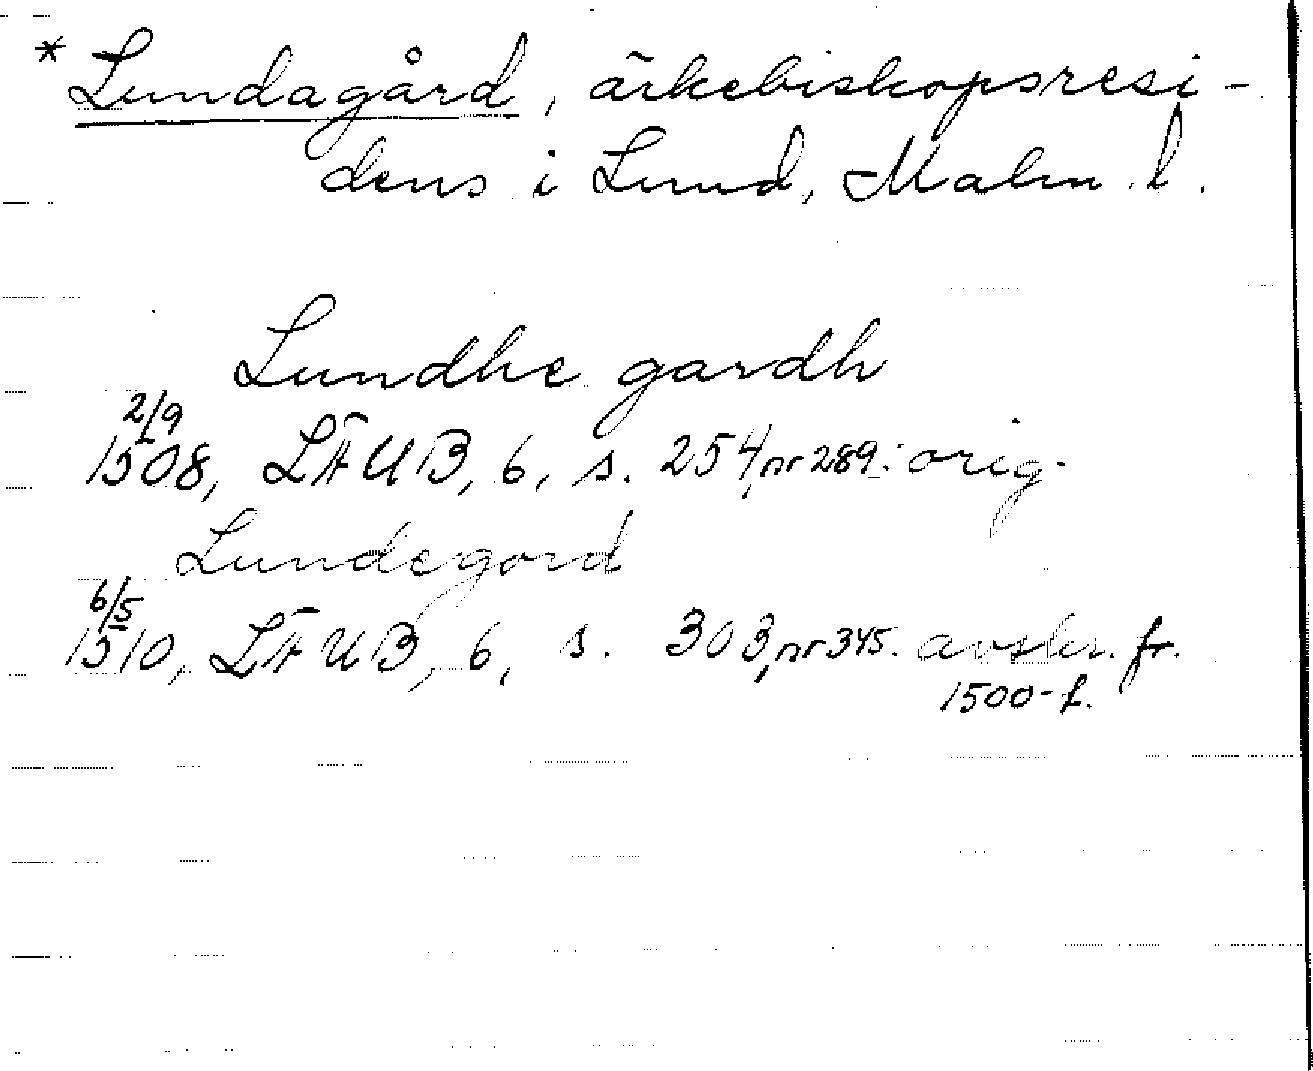 * Lundagård, ärkebiskopsresi-
dens i Lund, Malm. l.
Lundhe gardh
2/9
1508, LÄUB, 6, s. 254, nr 289. orig.
Lundegord
6/5
1510, LÄUB, 6, s. 303, nr 345. avskr. fr.
1500-t.